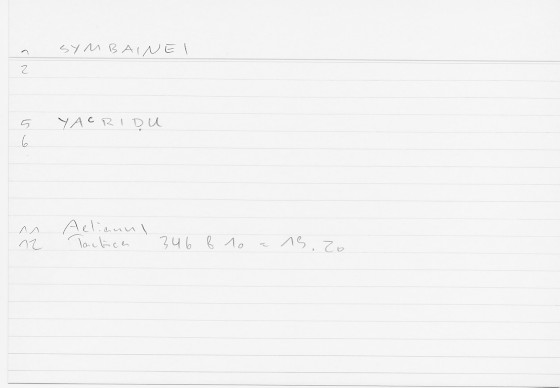 1 SYMBAINEI
2
5 YACRIDU
6
11 Aelianus
12 Tactica 346 B 10 = 19.20